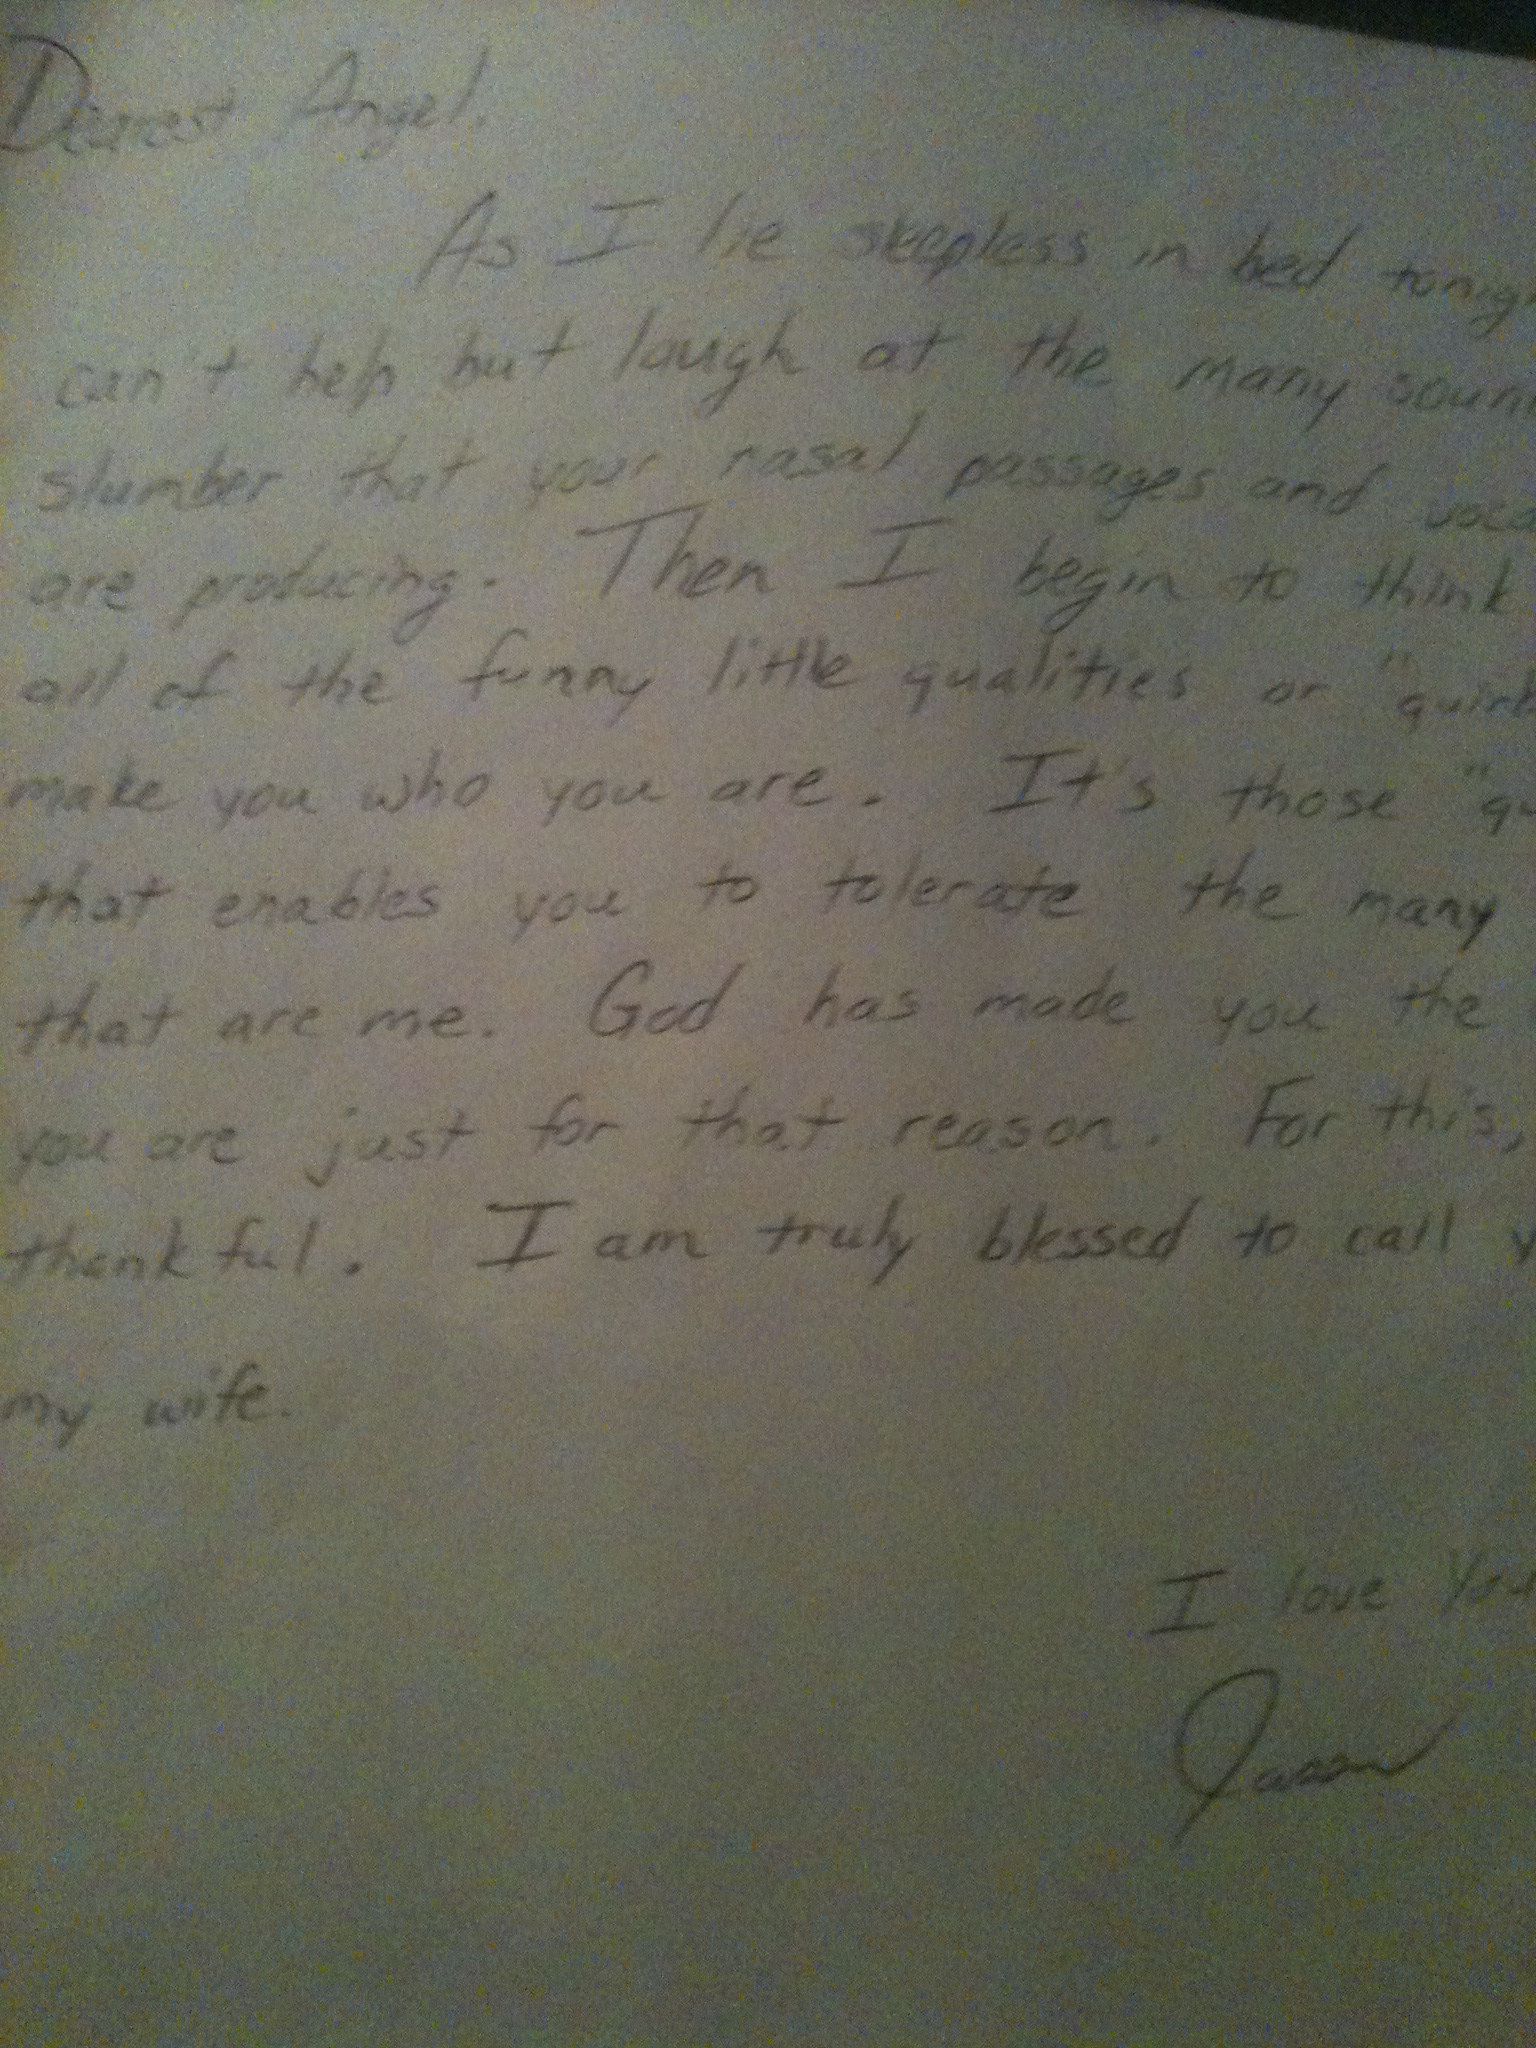 Dearest Angel,
As I lie sleepless in bed tonig
can't help but laugh at the many soun
slumber that your nasal passages and voca
are producing. Then I begin to think
all of the funny little qualities or "quirk
make you who you are. It's those "qu
that enables you to tolerate the many
that are me. God has made you the
you are just for that reason. For this,
thankful. I am truly blessed to call y
my wife.
I love You
Jason